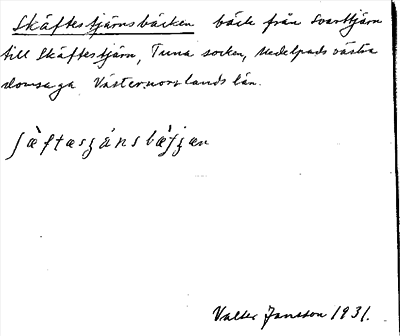 Skäftestjärnsbäcken bäck från Svarttjärn
till Skäftestjärn, Tuna socken, Medelpads västra
domsaga Västernorrlands län.
ʃæ̀ftæsʒánsbæ̀ʃʒæn
Valter Jansson 1931.